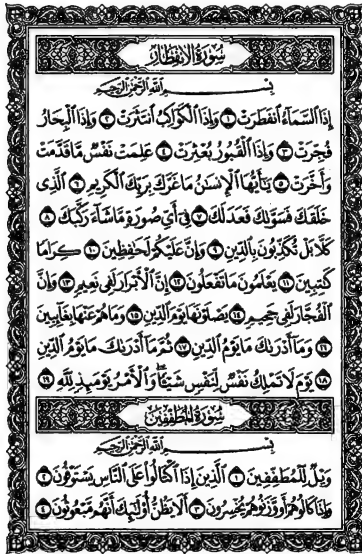 سُورَةُ الِانفِطَارِ
بِسْمِ ٱللَّهِ ٱلرَّحْمَٰنِ ٱلرَّحِيمِ
إِذَا ٱلسَّمَآءُ ٱنفَطَرَتْ ١ وَإِذَا ٱلْكَوَاكِبُ ٱنتَثَرَتْ ٢ وَإِذَا ٱلْبِحَارُ
فُجِّرَتْ ٣ وَإِذَا ٱلْقُبُورُ بُعْثِرَتْ ٤ عَلِمَتْ نَفْسٌ مَّا قَدَّمَتْ
وَأَخَّرَتْ ٥ يَٰٓأَيُّهَا ٱلْإِنسَٰنُ مَا غَرَّكَ بِرَبِّكَ ٱلْكَرِيمِ ٦ ٱلَّذِى
خَلَقَكَ فَسَوَّىٰكَ فَعَدَلَكَ ٧ فِىٓ أَىِّ صُورَةٍ مَّا شَآءَ رَكَّبَكَ ٨
كَلَّا بَلْ تُكَذِّبُونَ بِٱلدِّينِ ٩ وَإِنَّ عَلَيْكُمْ لَحَٰفِظِينَ ١٠ كِرَامًا
كَٰتِبِينَ ١١ يَعْلَمُونَ مَا تَفْعَلُونَ ١٢ إِنَّ ٱلْأَبْرَارَ لَفِى نَعِيمٍ ١٣ وَإِنَّ
ٱلْفُجَّارَ لَفِى جَحِيمٍ ١٤ يَصْلَوْنَهَا يَوْمَ ٱلدِّينِ ١٥ وَمَا هُمْ عَنْهَا بِغَآئِبِينَ
١٦ وَمَآ أَدْرَىٰكَ مَا يَوْمُ ٱلدِّينِ ١٧ ثُمَّ مَآ أَدْرَىٰكَ مَا يَوْمُ ٱلدِّينِ
١٨ يَوْمَ لَا تَمْلِكُ نَفْسٌ لِّنَفْسٍ شَيْـًٔا وَٱلْأَمْرُ يَوْمَئِذٍ لِّلَّهِ ١٩
سُورَةُ المُطَفِّفِينَ
بِسْمِ ٱللَّهِ ٱلرَّحْمَٰنِ ٱلرَّحِيمِ
وَيْلٌ لِّلْمُطَفِّفِينَ ١ ٱلَّذِينَ إِذَا ٱكْتَالُوا۟ عَلَى ٱلنَّاسِ يَسْتَوْفُونَ ٢
وَإِذَا كَالُوهُمْ أَو وَّزَنُوهُمْ يُخْسِرُونَ ٣ أَلَا يَظُنُّ أُو۟لَٰٓئِكَ أَنَّهُم مَّبْعُوثُونَ ٤